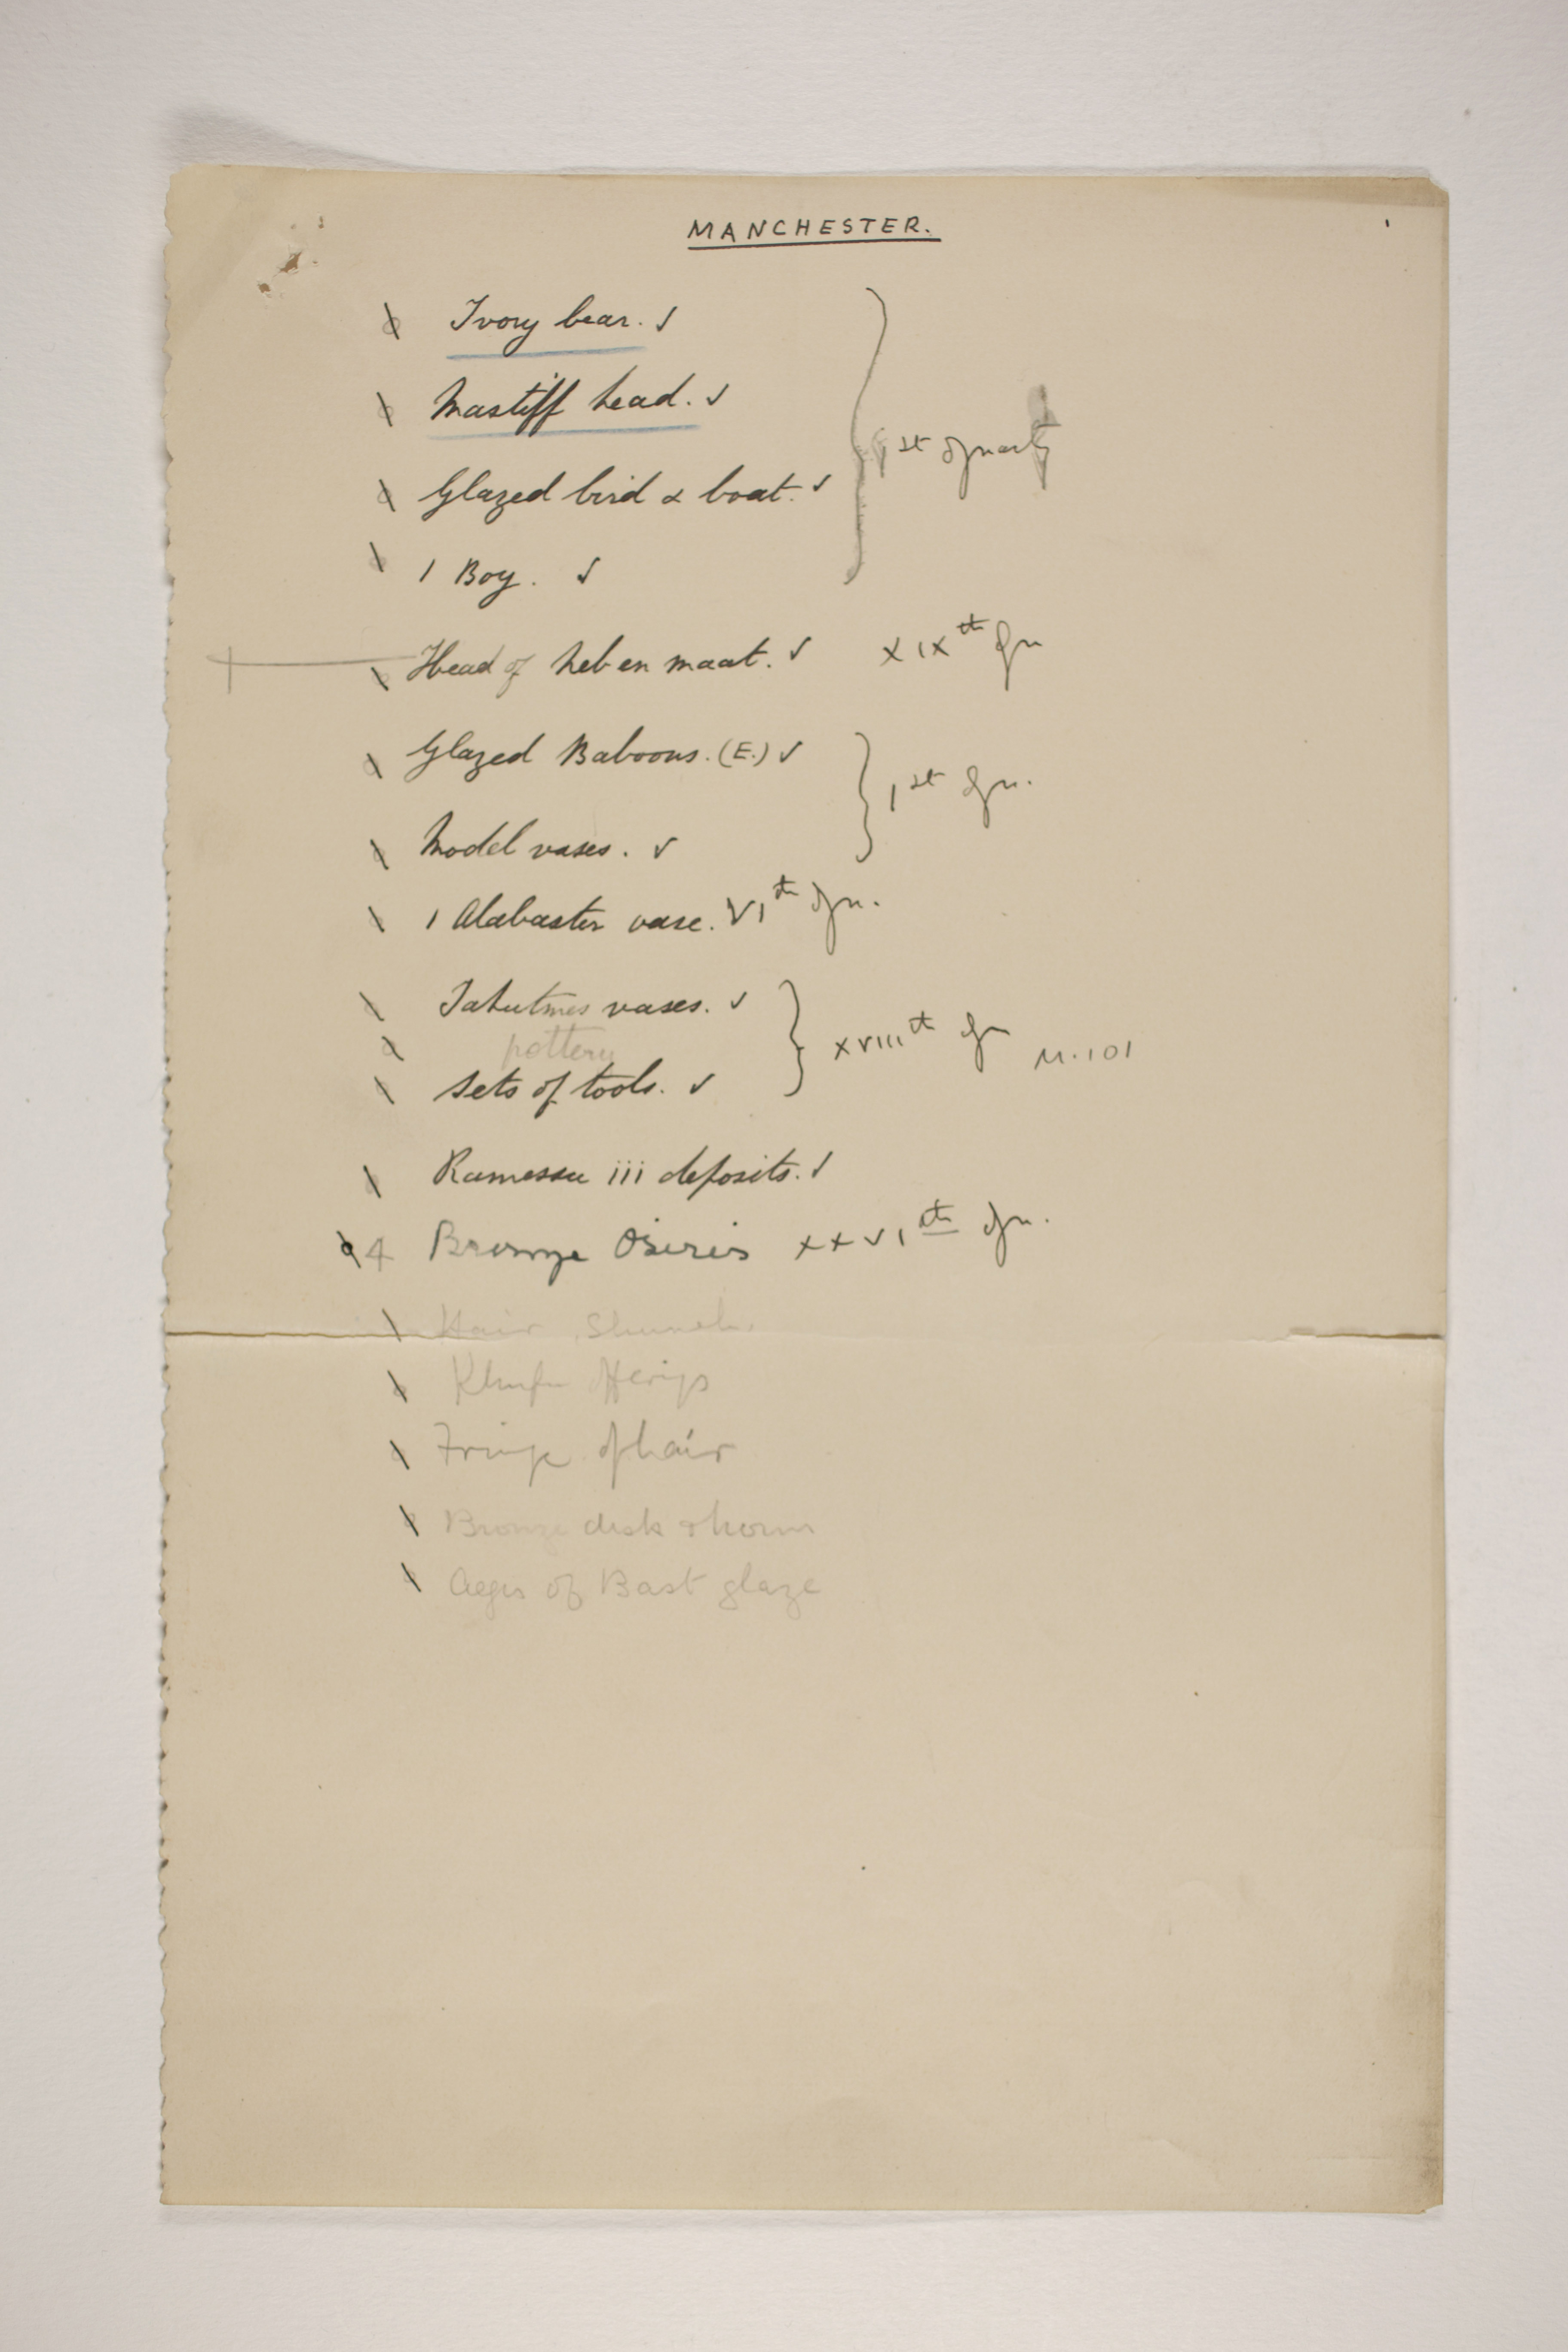 MANCHESTER.
Ivory bear. ✓
Mastiff head. ✓
Glazed bird & boat. ✓
1st Dynasty
1 Boy. ✓
Head of Neb en maat. ✓ XIXth Dyn
Glazed Baboons. (E.) ✓
1st Dyn.
Model vases. ✓
1 Alabaster vase. VIth Dyn.
Tahutmes vases. ✓
pottery
XVIIIth Dyn M.101
Sets of tools. ✓
Ramessu iii deposits. ✓
4 Bronze Osiris XXVIth Dyn.
Hair Shuneh.
Khufu offerings
Fringe of hair
Bronze disk & horns
Aegis of Bast glaze